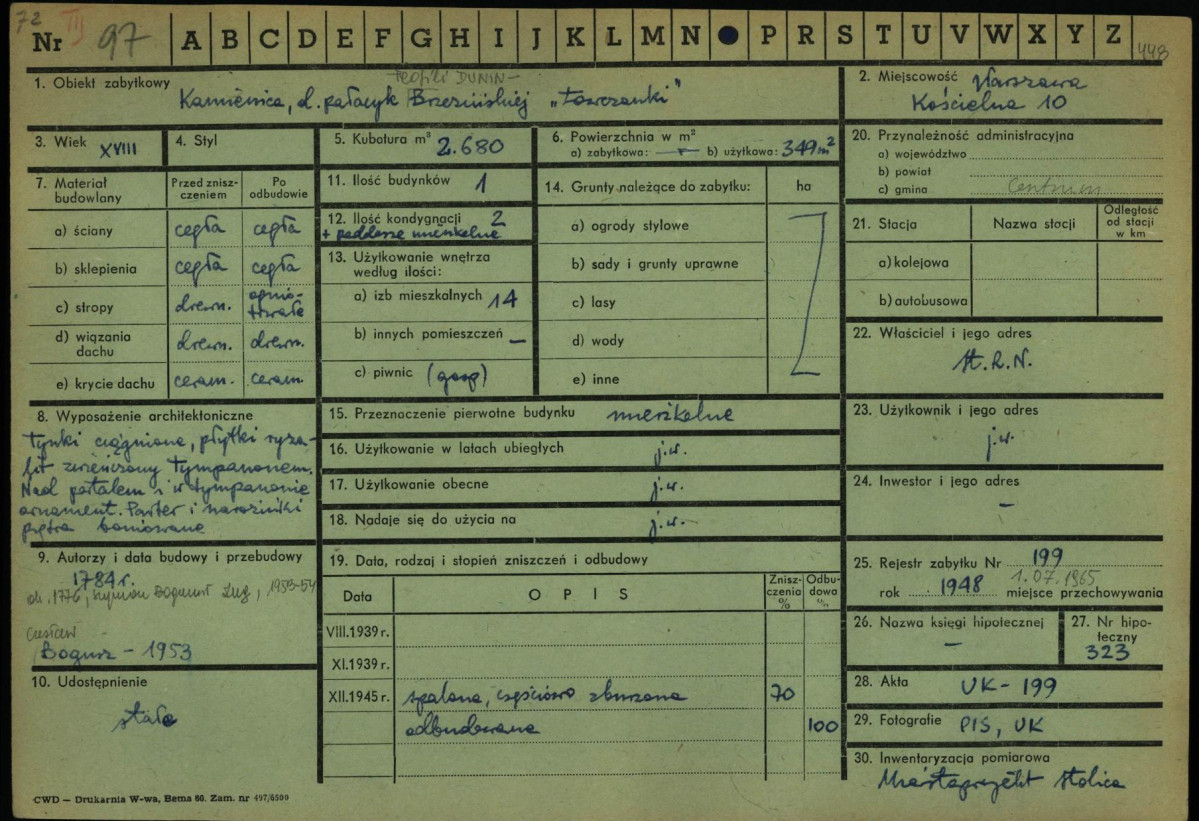 72
Nr III 97 A B C D E F G H I J K L M N ● P R S T U V W X Y Z 448
1. Obiekt zabytkowy Teofili DUNIN-
Kamienica, d. pałacyk Brzezińskiej „Łowczanki"
2. Miejscowość Warszawa
Kościelna 10
3. Wiek XVIII
4. Styl
5. Kubatura m³ 2.680
6. Powierzchnia w m²
a) zabytkowa: — b) użytkowa: 349 m²
20. Przynależność administracyjna
a) województwo
b) powiat
c) gmina Centrum
7. Materiał budowlany
Przed znisz-
czeniem
Po
odbudowie
a) ściany cegła cegła
b) sklepienia cegła cegła
c) stropy drewn. ognio-
trwałe
d) wiązania
dachu drewn. drewn.
e) krycie dachu ceram. ceram.
11. Ilość budynków 1
12. Ilość kondygnacji 2
+ poddasze mieszkalne
13. Użytkowanie wnętrza
według ilości:
a) izb mieszkalnych 14
b) innych pomieszczeń —
c) piwnic (gosp)
14. Grunty należące do zabytku: ha
a) ogrody stylowe
b) sady i grunty uprawne
c) lasy
d) wody
e) inne
21. Stacja Nazwa stacji
Odległość
od stacji
w km
a) kolejowa
b) autobusowa
22. Właściciel i jego adres
St. R. N.
8. Wyposażenie architektoniczne
Tynki ciągnione, płytki ryza-
lit zwieńczony tympanonem.
Nad portalem i w tympanonie
ornament. Parter i narożniki
piętra boniowane
15. Przeznaczenie pierwotne budynku mieszkalne
16. Użytkowanie w latach ubiegłych j.w.
17. Użytkowanie obecne j.w.
18. Nadaje się do użycia na j.w.
23. Użytkownik i jego adres
j.w.
24. Inwestor i jego adres
—
9. Autorzy i data budowy i przebudowy
1784 r.
ok. 1776, Szymon Bogumił Zug, 1953-54
Czesław
Bogusz – 1953
10. Udostępnienie
stałe
19. Data, rodzaj i stopień zniszczeń i odbudowy
Data OPIS
Znisz-
czenia
%
Odbu-
dowa
%
VIII.1939 r.
XI.1939 r.
XII.1945 r. spalona, częściowo zburzona 70
odbudowana 100
25. Rejestr zabytku Nr 199
1.07.1965
rok 1948 miejsce przechowywania
26. Nazwa księgi hipotecznej
—
27. Nr hipo-
teczny
323
28. Akta UK-199
29. Fotografie PIS, UK
30. Inwentaryzacja pomiarowa
Miastoprojekt Stolica
CWD — Drukarnia W-wa, Bema 60. Zam. nr 497/6500